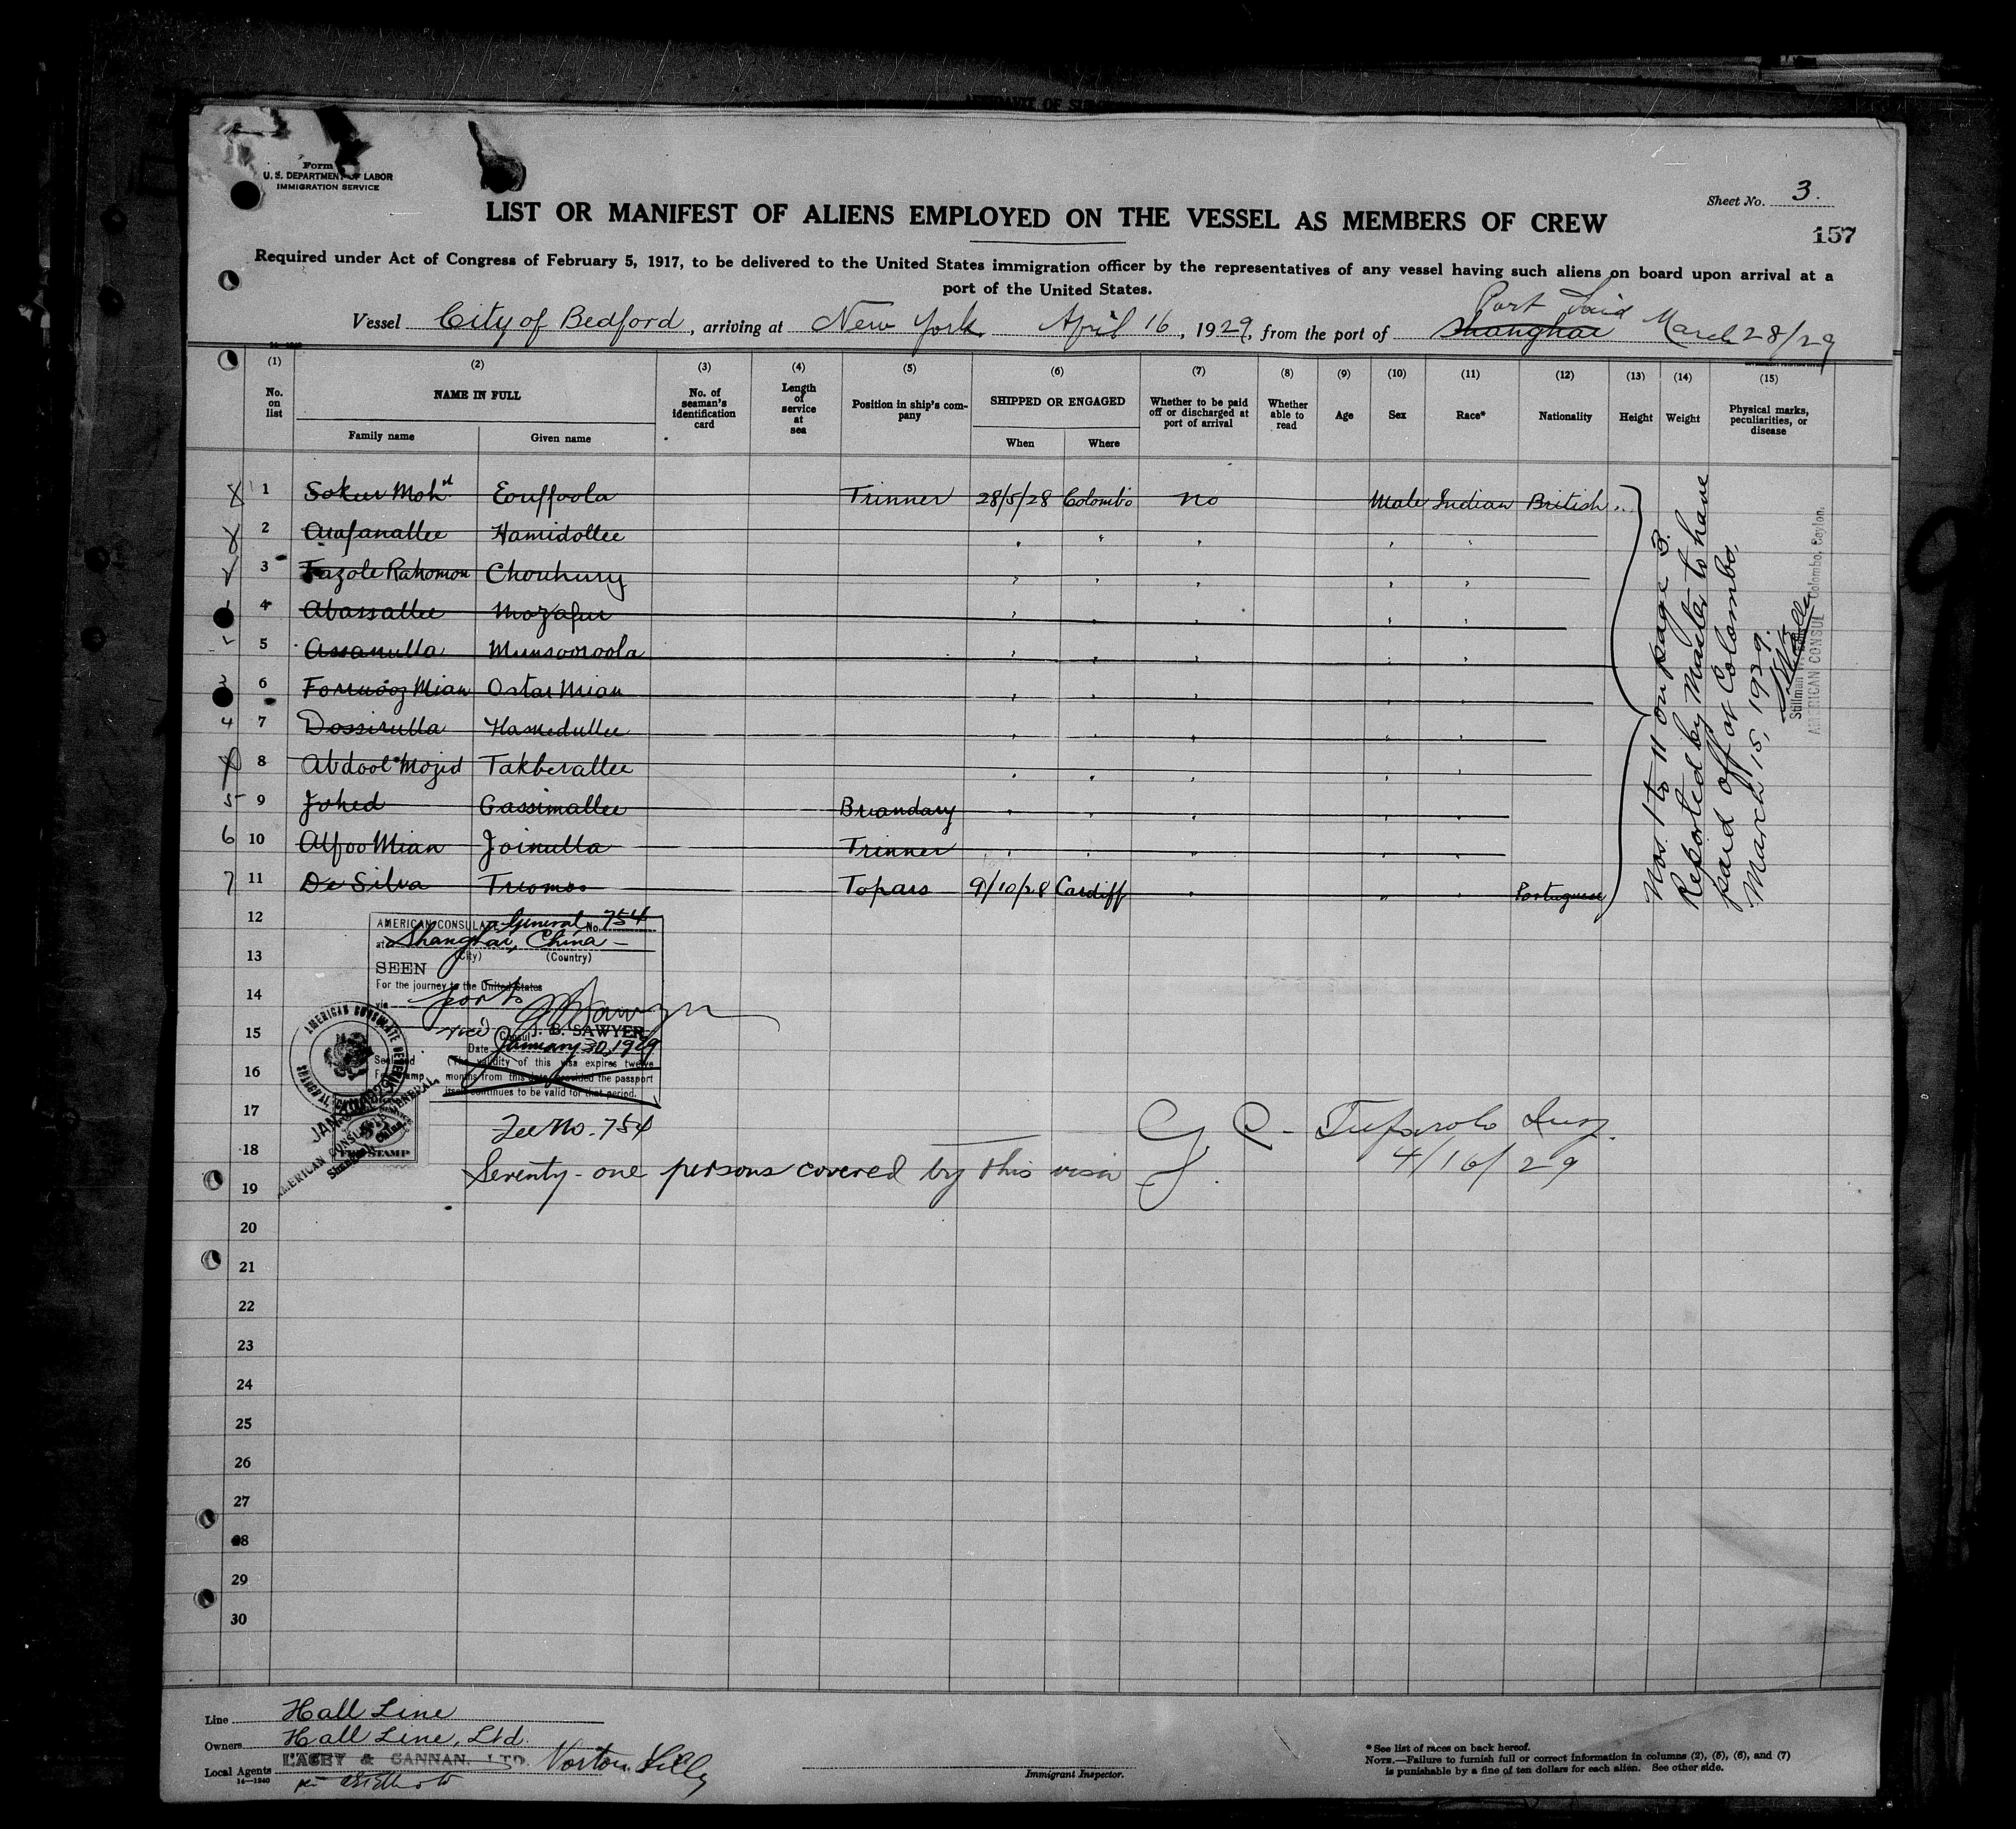 AFFIDAVIT OF SUR
Form
U. S. DEPARTMENT OF LABOR
IMMIGRATION SERVICE
Sheet No. 3.
LIST OR MANIFEST OF ALIENS EMPLOYED ON THE VESSEL AS MEMBERS OF CREW
157
Required under Act of Congress of February 5, 1917, to be delivered to the United States immigration officer by the representatives of any vessel having such aliens on board upon arrival at a
port of the United States.
Port Said
Vessel City of Bedford, arriving at New York April 16, 1929, from the port of Shanghai March 28/29
(1) (2) (3) (4) (5) (6) (7) (8) (9) (10) (11) (12) (13) (14) (15)
No. on list
NAME IN FULL
Family name Given name
No. of seaman's identification card
Length of service at sea
Position in ship's company
SHIPPED OR ENGAGED
When Where
Whether to be paid off or discharged at port of arrival
Whether able to read
Age
Sex
Race*
Nationality
Height
Weight
Physical marks, peculiarities, or disease
1 Sokur Mohd Eouffoola Trimmer 28/5/28 Colombo No Male Indian British ..
2 Arafanallee Hamidollee " " " " "
3 Fazole Rahomon Chowhury " " " " "
4 Abassallee Mozafur " " " " "
5 Assanulla Munsooroola " " " " "
6 Formooz Mian Ostar Mian " " " " "
4 7 Dossirulla Hamedullee " " " " "
8 Abdool Mozid Takberallee " " " " "
5 9 Johed Cassimallee Briandary " " " " "
6 10 Alfoo Mian Joinulla Trimmer " " " " "
7 11 De Silva Triomos Topars 9/10/28 Cardiff " " " Portuguese
Nos. 1 to 11 on page 3.
Reported by Master to have
paid off at Colombo,
March 15, 1929.
Stillman
AMERICAN CONSUL Colombo, Ceylon.
12
13
14
15
16
17
18
19
20
21
22
23
24
25
26
27
28
29
30
AMERICAN CONSULATE General No. 754
at Shanghai, China
(City) (Country)
SEEN
For the journey to the United States
via ports
vice Consul J. B. SAWYER
Date January 30, 1929
(The validity of this visa expires twelve
months from this date provided the passport
itself continues to be valid for that period.
Seal and
Fee Stamp
AMERICAN CONSULATE GENERAL
SHANGHAI, CHINA
AMERICAN CONSULATE GENERAL,
Shanghai, China.
FEE STAMP
Fee No. 754
Seventy-one persons covered by this visa
4/16/29
Line Hall Line
Owners Hall Line, Ltd.
LACEY & CANNAN, LTD. Norton Lilly
Local Agents
14—1240
per
Immigrant Inspector.
* See list of races on back hereof.
NOTE.—Failure to furnish full or correct information in columns (2), (5), (6), and (7)
is punishable by a fine of ten dollars for each alien. See other side.